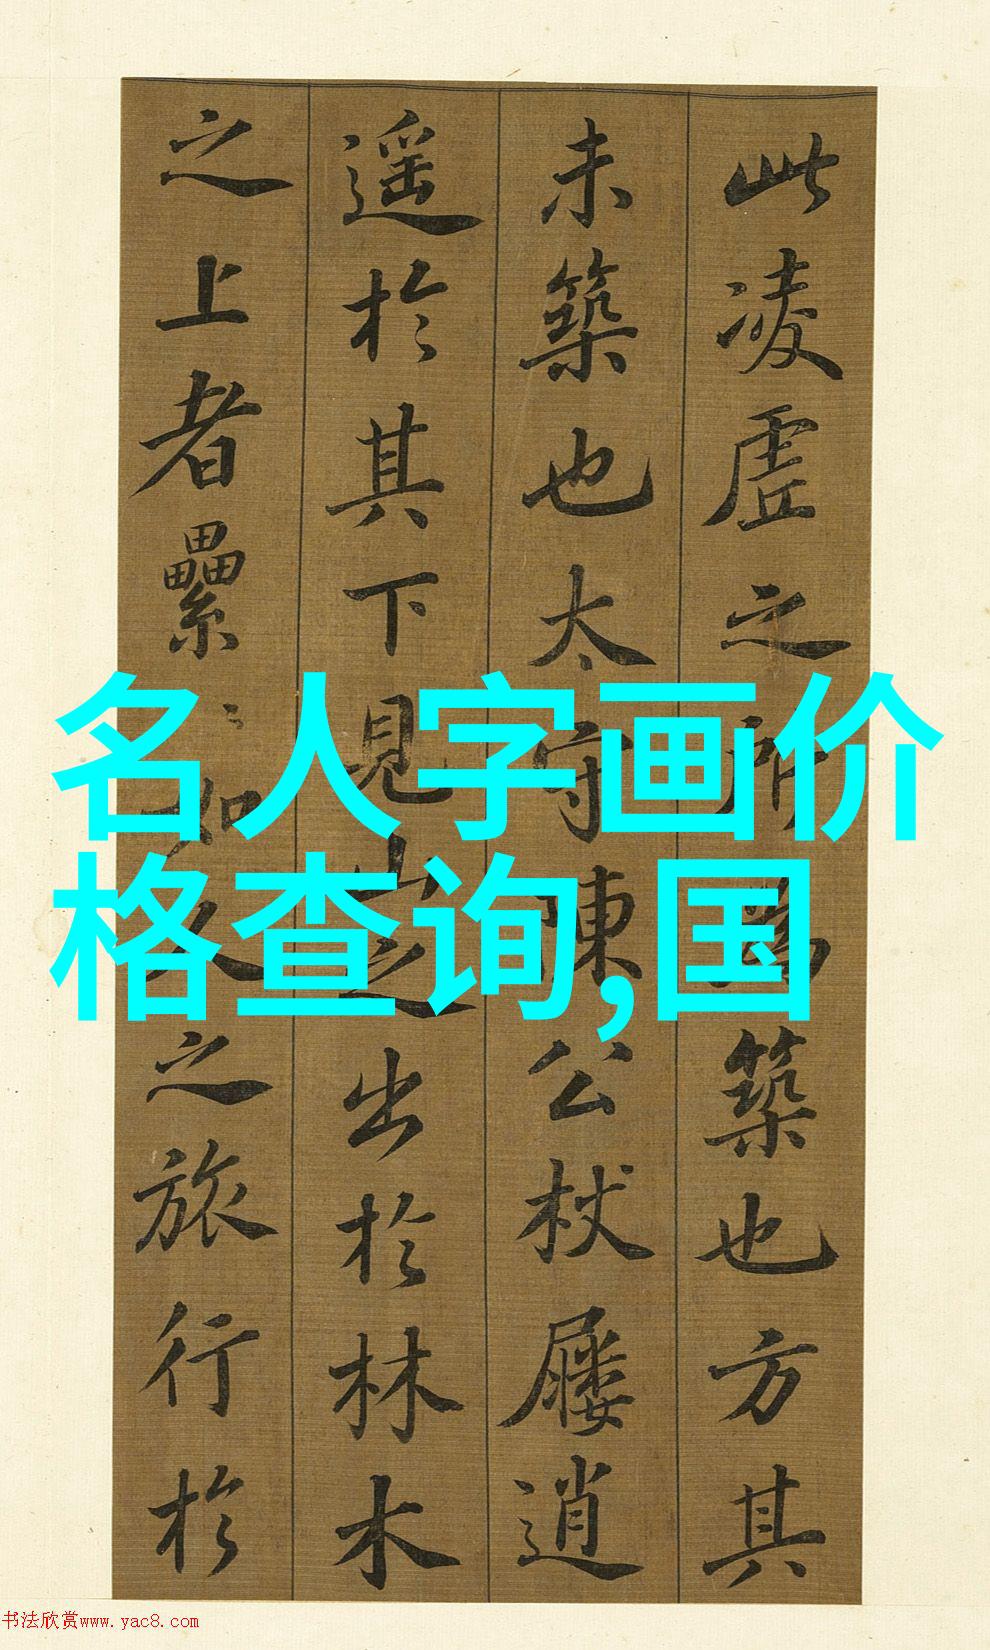 此凌虛之所為築也方其
未築也太守陳公杖屨逍
遥於其下見山之出於林木
之上者纍〻如人之旅行於
名人字画价
格查询,国
书法欣赏www.yac8.com